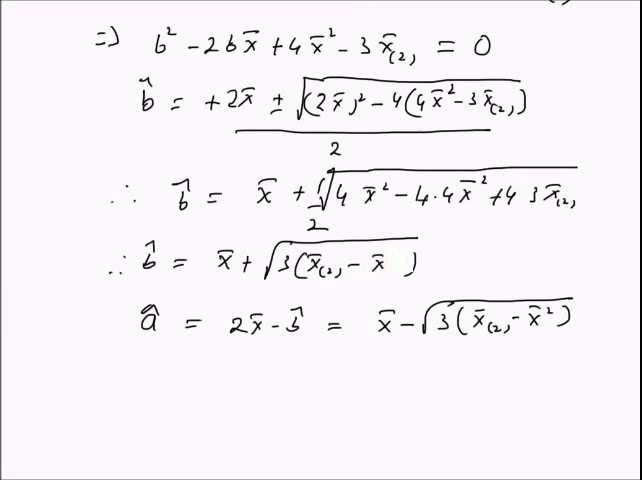 ⇒ b² - 2bx̄ + 4x̄² - 3x̄₍₂₎ = 0
b̂ = +2x̄ ± √((2x̄)² - 4(4x̄² - 3x̄₍₂₎)) / 2
∴ b̂ = x̄ + ½√(4x̄² - 4·4x̄² + 4 3x̄₍₂₎
∴ b̂ = x̄ + √(3(x̄₍₂₎ - x̄ ))
â = 2x̄ - b̂ = x̄ - √(3(x̄₍₂₎ - x̄²))